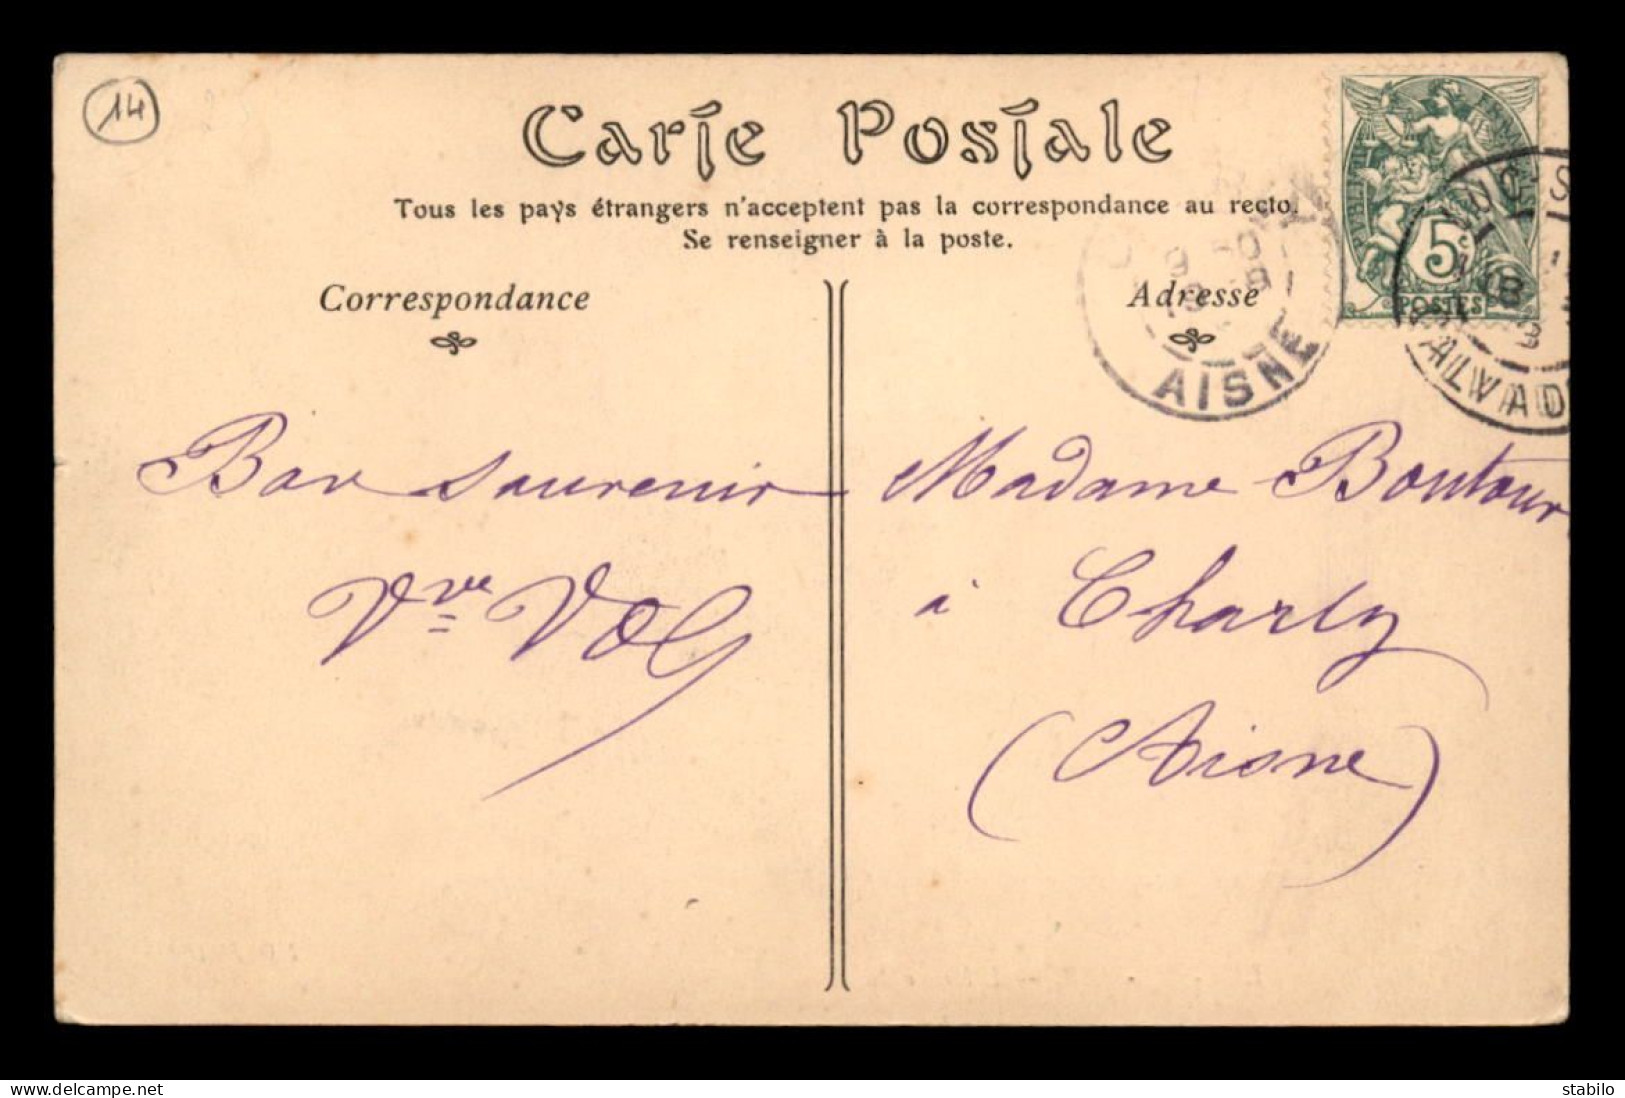 14
Carte Postale
Tous les pays étrangers n'acceptent pas la correspondance au recto.
Se renseigner à la poste.
Correspondance
Adresse
5c
POSTES
AISNE
Bon souvenir
Vve
Madame
à Charly
(Aisne)
www.delcampe.net
stabilo